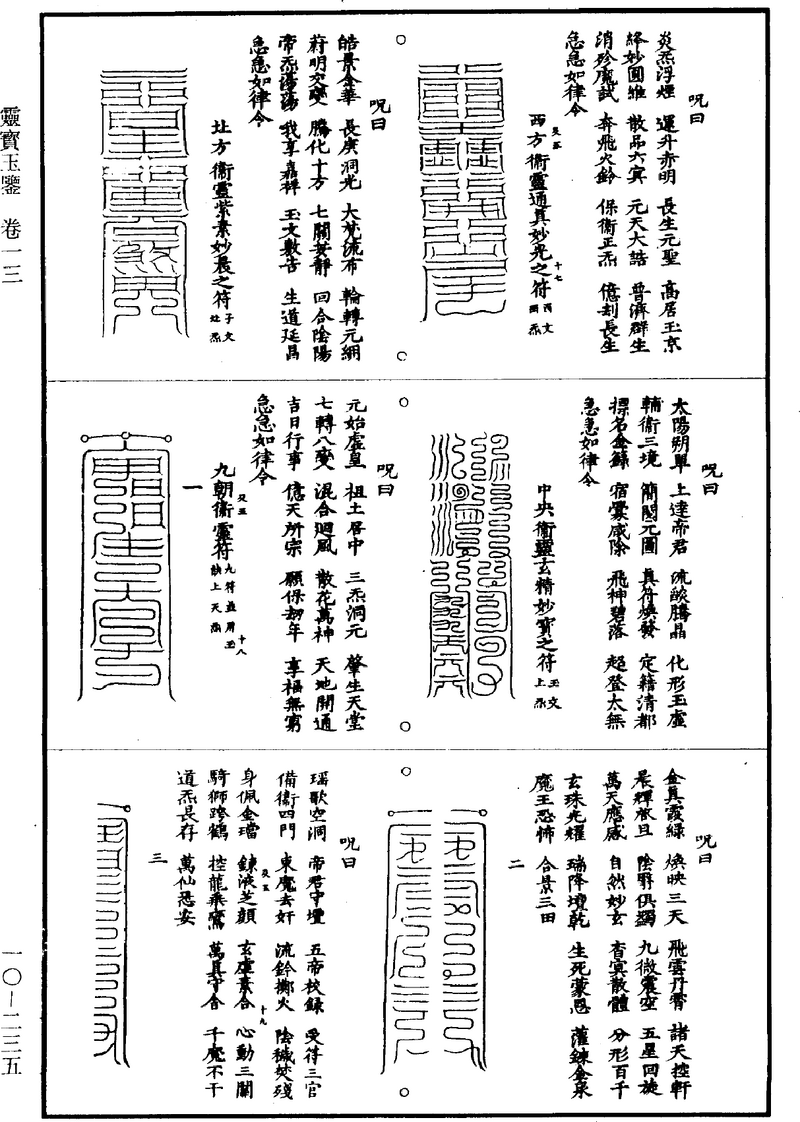 靈寶玉鑒 卷一三
一〇—二三五
呪曰
炎炁浮煙 運升赤明 長生元聖 高居玉京
絳妙圓雅 散品六冥 元天大誥 普濟群生
消殄魔試 奔飛火鈴 保衛正炁 億刦長生
急急如律令
西方衛靈通真妙光之符
十七
呪曰
皓景金華 長庚洞光 大梵流布 輪轉元綱
蔚明交變 騰化十方 七關安靜 回合陰陽
帝炁蕩蕩 我享嘉祥 玉文敷告 生道延昌
急急如律令
北方衛靈紫素妙晨之符
呪曰
太陽朔單 上達帝君 流燄騰晶 化形玉虛
輔衛三境 簡閱元圖 真符煥發 定籍清都
標名金籙 宿釁咸除 飛神碧落 超登太無
急急如律令
中央衛靈玄精妙寶之符
呪曰
元始虛皇 祖土居中 三炁洞元 肇生天堂
七轉八變 混合迴風 散花萬神 天地開通
吉日行事 億天所宗 願保劫年 享福無窮
急急如律令
九朝衛靈符
十八
一
呪曰
金真霞綠 煥映三天 飛雲丹霄 諸天控軒
晨輝散旦 陰翳俱蠲 九微震空 五星回旋
萬天應感 自然妙玄 杳冥散體 分形百千
玄珠光耀 瑞降境乾 生死蒙恩 灌鍊金泉
魔王恐怖 合景三田
二
呪曰
瑶歌空洞 帝君守壇 五帝校錄 受符三官
備衛四門 東魔去奸 流鈴擲火 陰穢焚殘
身佩金璫 鍊液芝顏 玄虛素合 心動三關
十九
騎獅跨鶴 控龍乘鸞 萬真守舍 千魔不干
道炁長存 萬仙悉安
三